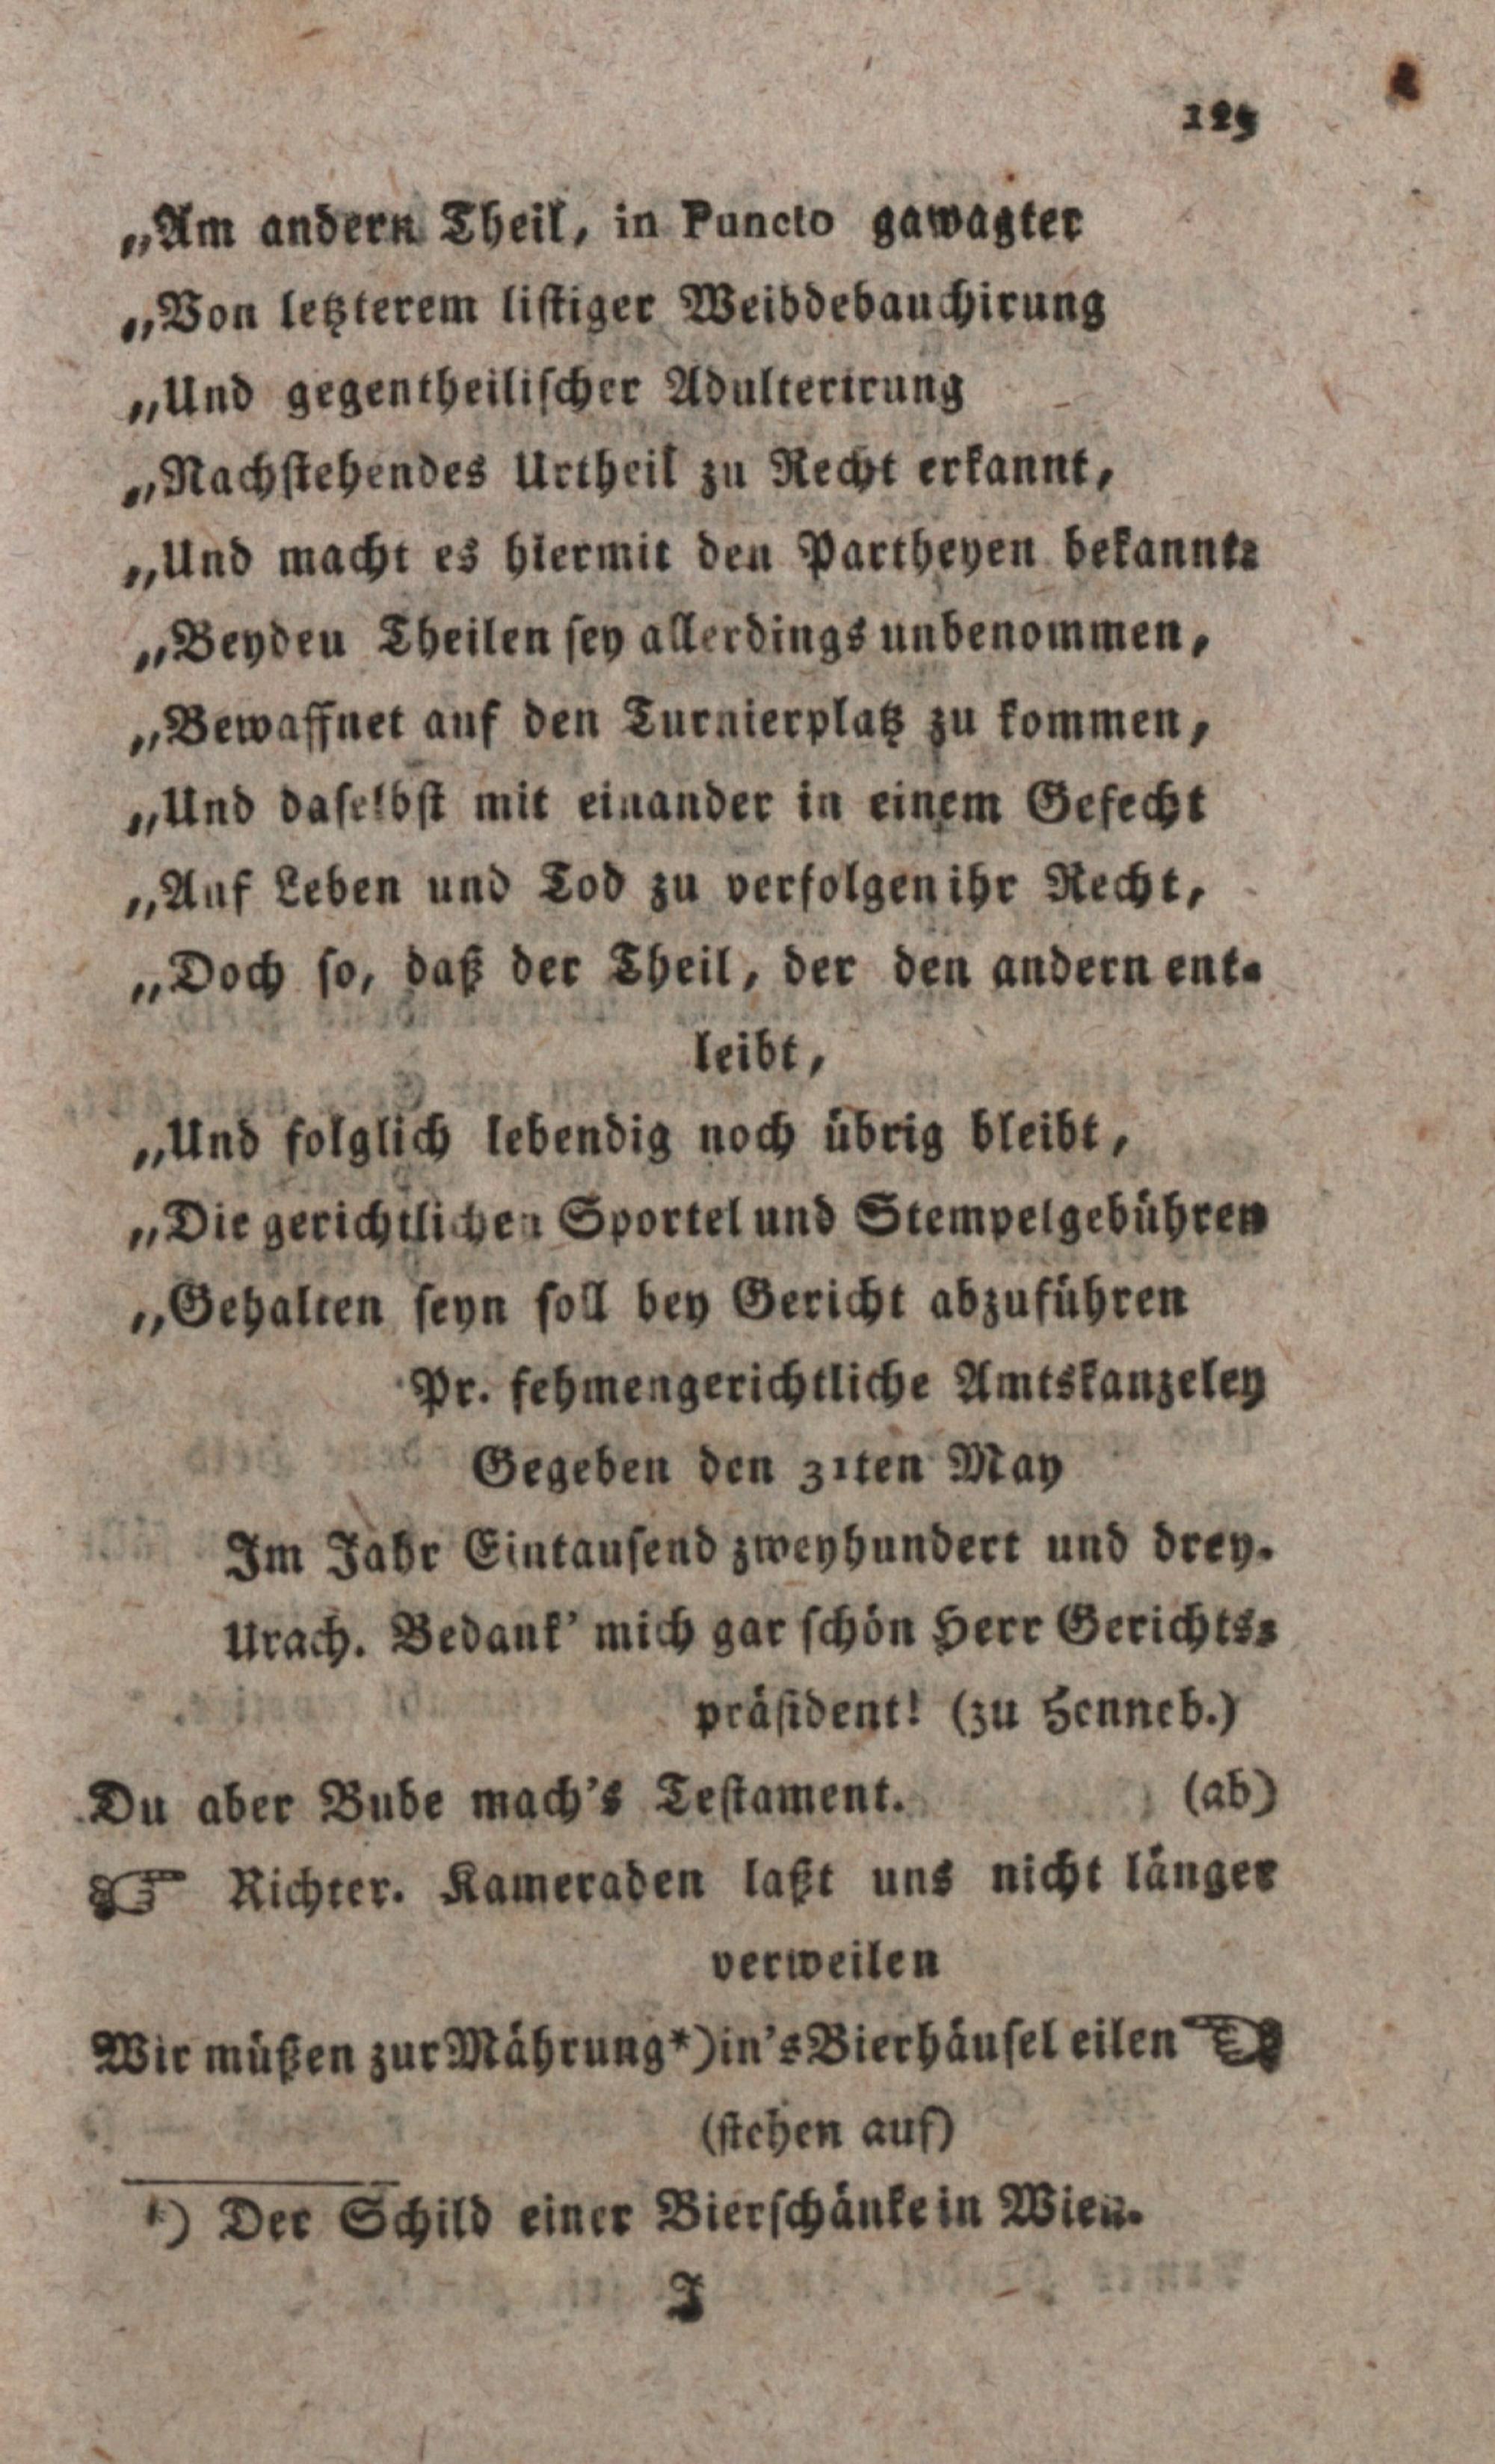 129
„Am andern Theil, in Puncto gawagter
„Von letzterem listiger Weibdebauchirung
„Und gegentheilischer Adulterirung
„Nachstehendes Urtheil zu Recht erkannt,
„Und macht es hiermit den Partheyen bekannt:
„Beyden Theilen sey allerdings unbenommen,
„Bewaffnet auf den Turnierplatz zu kommen,
„Und daselbst mit einander in einem Gefecht
„Auf Leben und Tod zu verfolgen ihr Recht,
„Doch so, daß der Theil, der den andern ent-
leibt,
„Und folglich lebendig noch übrig bleibt,
„Die gerichtlichen Sportel und Stempelgebühren
„Gehalten seyn soll bey Gericht abzuführen
Pr. fehmengerichtliche Amtskanzeley
Gegeben den 31ten May
Im Jahr Eintausend zweyhundert und drey.
Urach. Bedank' mich gar schön Herr Gerichts-
präsident! (zu Henneb.)
Du aber Bube mach's Testament. (ab)
☞ Richter. Kameraden laßt uns nicht länger
verweilen
Wir müßen zur Mährung*) in's Bierhäusel eilen ☜
(stehen auf)
*) Der Schild einer Bierschänke in Wien.
J